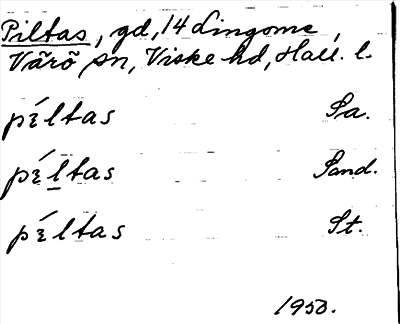 Piltas, gd, 14 Lingome,
Värö sn, Viske hd, Hall. l.
pɛ́ltas Sa.
pɛ́ltas Sand.
pɛ́ltas St.
1950.